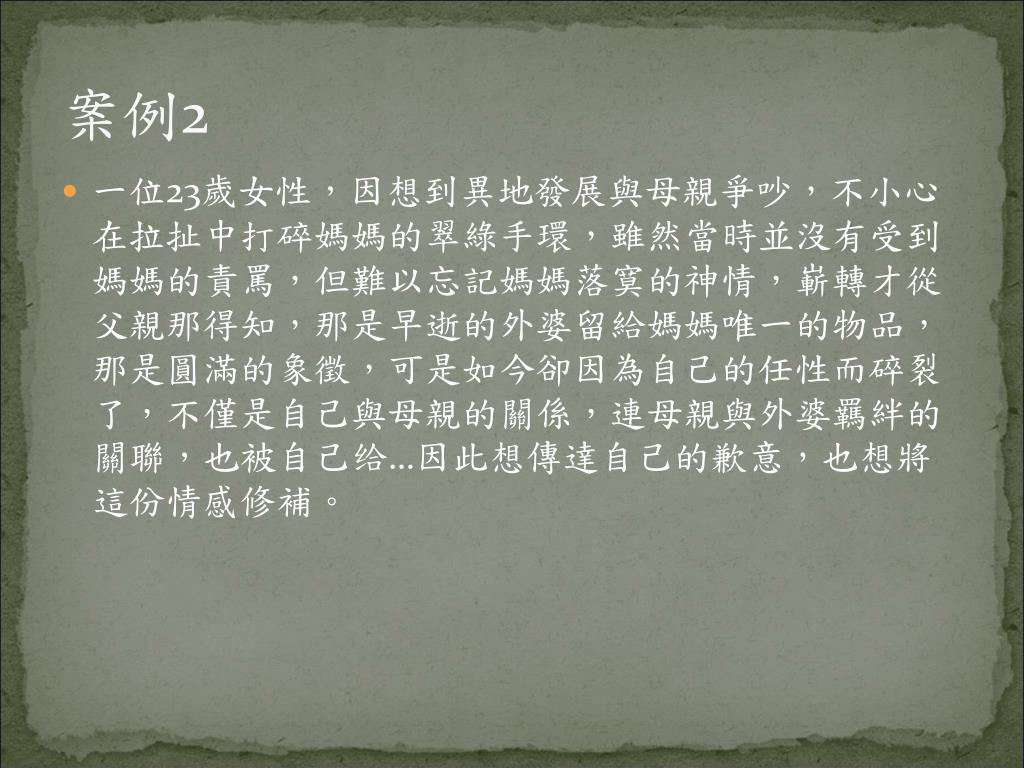 案例2
一位23歲女性，因想到異地發展與母親爭吵，不小心
在拉扯中打碎媽媽的翠綠手環，雖然當時並沒有受到
媽媽的責罵，但難以忘記媽媽落寞的神情，嶄轉才從
父親那得知，那是早逝的外婆留給媽媽唯一的物品，
那是圓滿的象徵，可是如今卻因為自己的任性而碎裂
了，不僅是自己與母親的關係，連母親與外婆羈絆的
關聯，也被自己给...因此想傳達自己的歉意，也想將
這份情感修補。